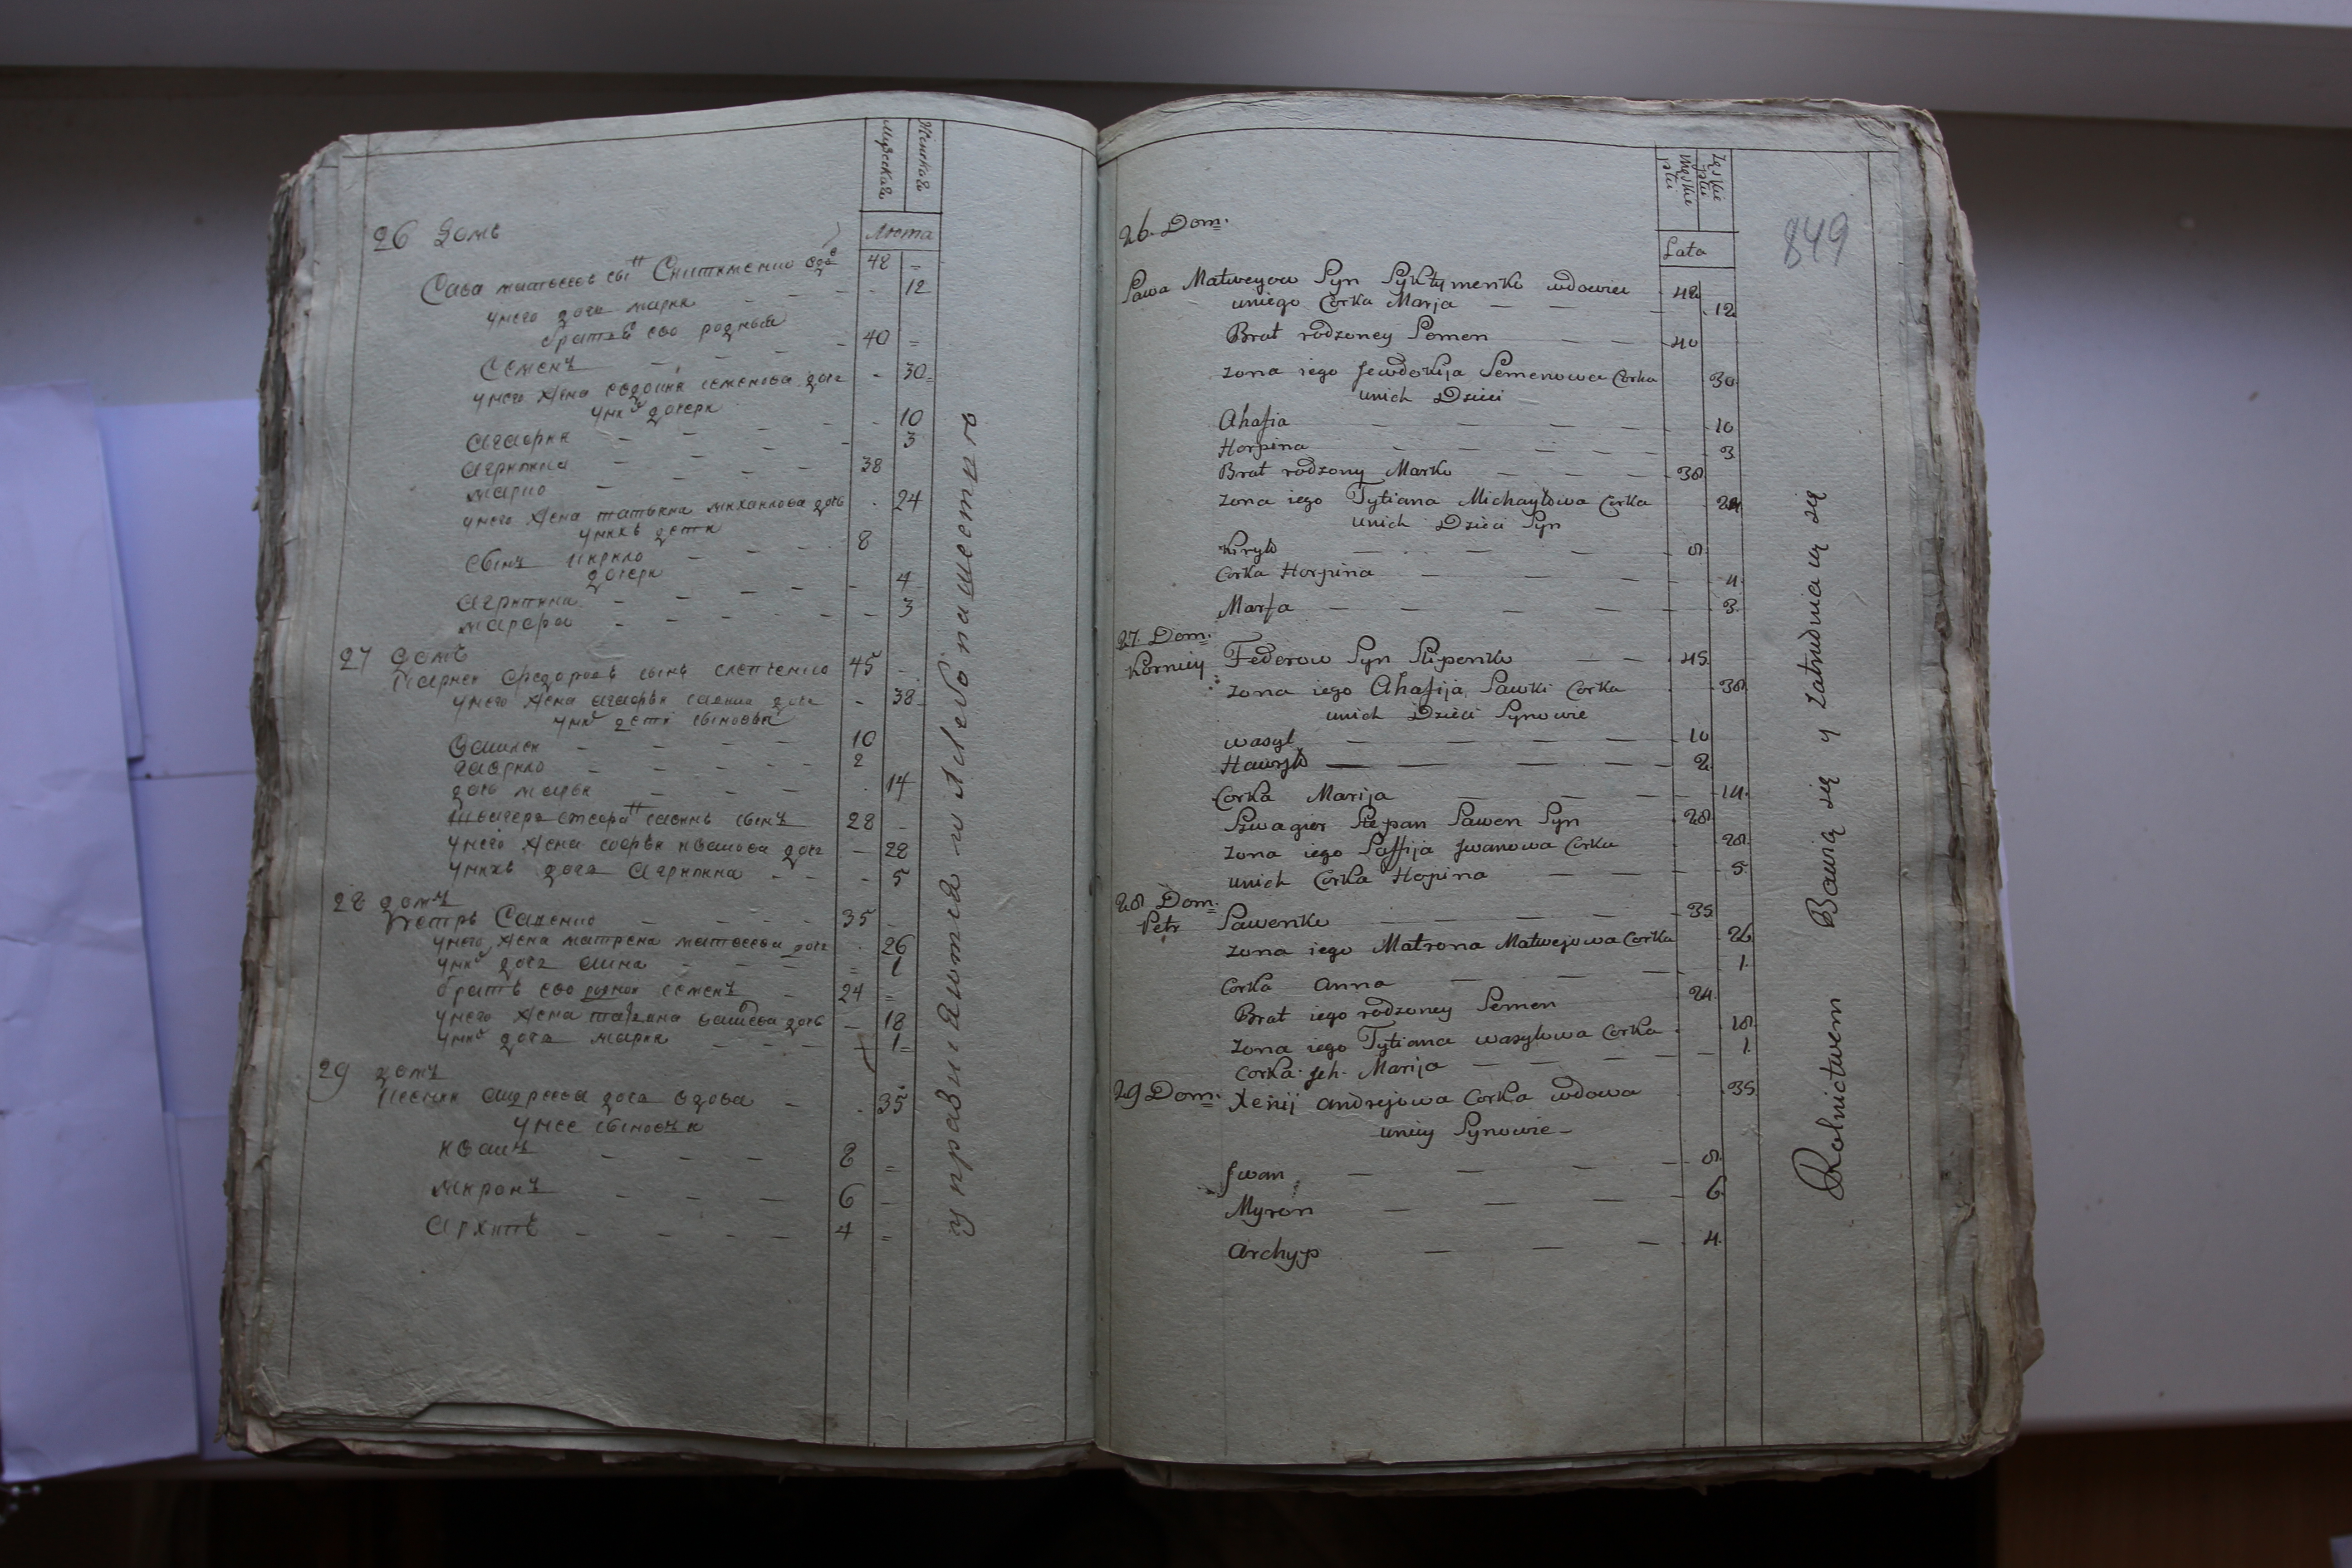 Мужеского
Женскаго
Люта
26 домъ
Сава матвеевъ сынъ
48 =
унего доче мария - - - 12
братъ ево родный
Семенъ - - - 40 =
унего жена евдокия семенова доче - 30=
уних дочери
агафия - - - 10
агрипина - - - 3
марко - - - 38
унего жена татьяна михаилова дочь . 24
унихъ дети
сынъ кирило - - - 8
дочери
агрипина - - - 4
марфа - - - 3
27 домъ
Карней Федоровъ сынъ 45 -
унего жена агафия савина доче - 38-
уних дети сыновья
Василей - - - 10
гаврило - - - 2
дочь мария . 14
савинъ сынъ 28 -
унего жена софья иванова доче - 28
унихъ доче агрипина - - - 5
28 домъ
Петръ Савенко - - - 35 -
унего жена матрена матвеева доче . 26
уних доче анна - - - = 1
братъ ево родной семенъ - 24 =
унего жена татяна дочь - 18
уних доче мария - - - 1=
29 домъ
Ксения андреева доче вдова - . 35
унее сыновья
иванъ - - - 8 =
миронъ - - - 6 -
архипъ - - - 4 =
управинаются хлебопашеством
849
męskie płci
Żęskie płci
Lata
26. Dom.
Sawa Matweyow Syn Syktymenko wdowiec 48
uniego Corka Marja — — 12
Brat rodzoney Semen — — 40
zona iego Jewdokija Semenowa Corka 30
unich Dzieci
Ahafia — — — 10
Horpina — — — 3
Brat rodzony Marko — — 38
zona iego Tytiana Michayłowa Corka 24
unich Dzieci Syn
Kiryło — — — 8
Corka Horpina — — — 4
Marfa — — — 3
27. Dom.
Korniey Federow Syn Slipenko — — 45
zona iego Ahafija Sawki Corka 38
unich Dzieci Synowie
wasyl — — — 10
Hawryło — — — 2
Corka Marija — — — 14
Szwagier Stepan Sawen Syn 28
zona iego Saffija Jwanowa Corka 28
unich Corka Hopina — — 5
28 Dom.
Petr Sawenko — — — 35
zona iego Matrona Matwejowa Corka 26
Corka Anna — — 1
Brat iego rodzoney Semen 24
zona iego Tytiana wasylowa Corka 18
Corka Jch. Marija — — 1
29 Dom. Xenij andrejowa Corka wdowa 35
uniey Synowie -
Jwan — — — 8
Myron — — — 6
Archyp — — — 4
Rolnictwem Bawią się y Zatrudniaią się